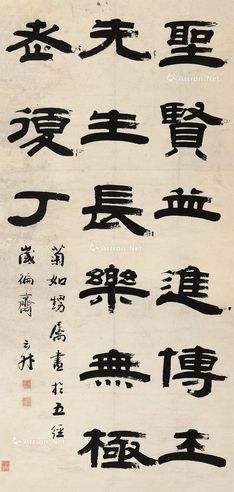 聖賢並進博士
先生長樂無極
老復丁
菊如甥屬書於五經
歲徧齋
Artron.Net